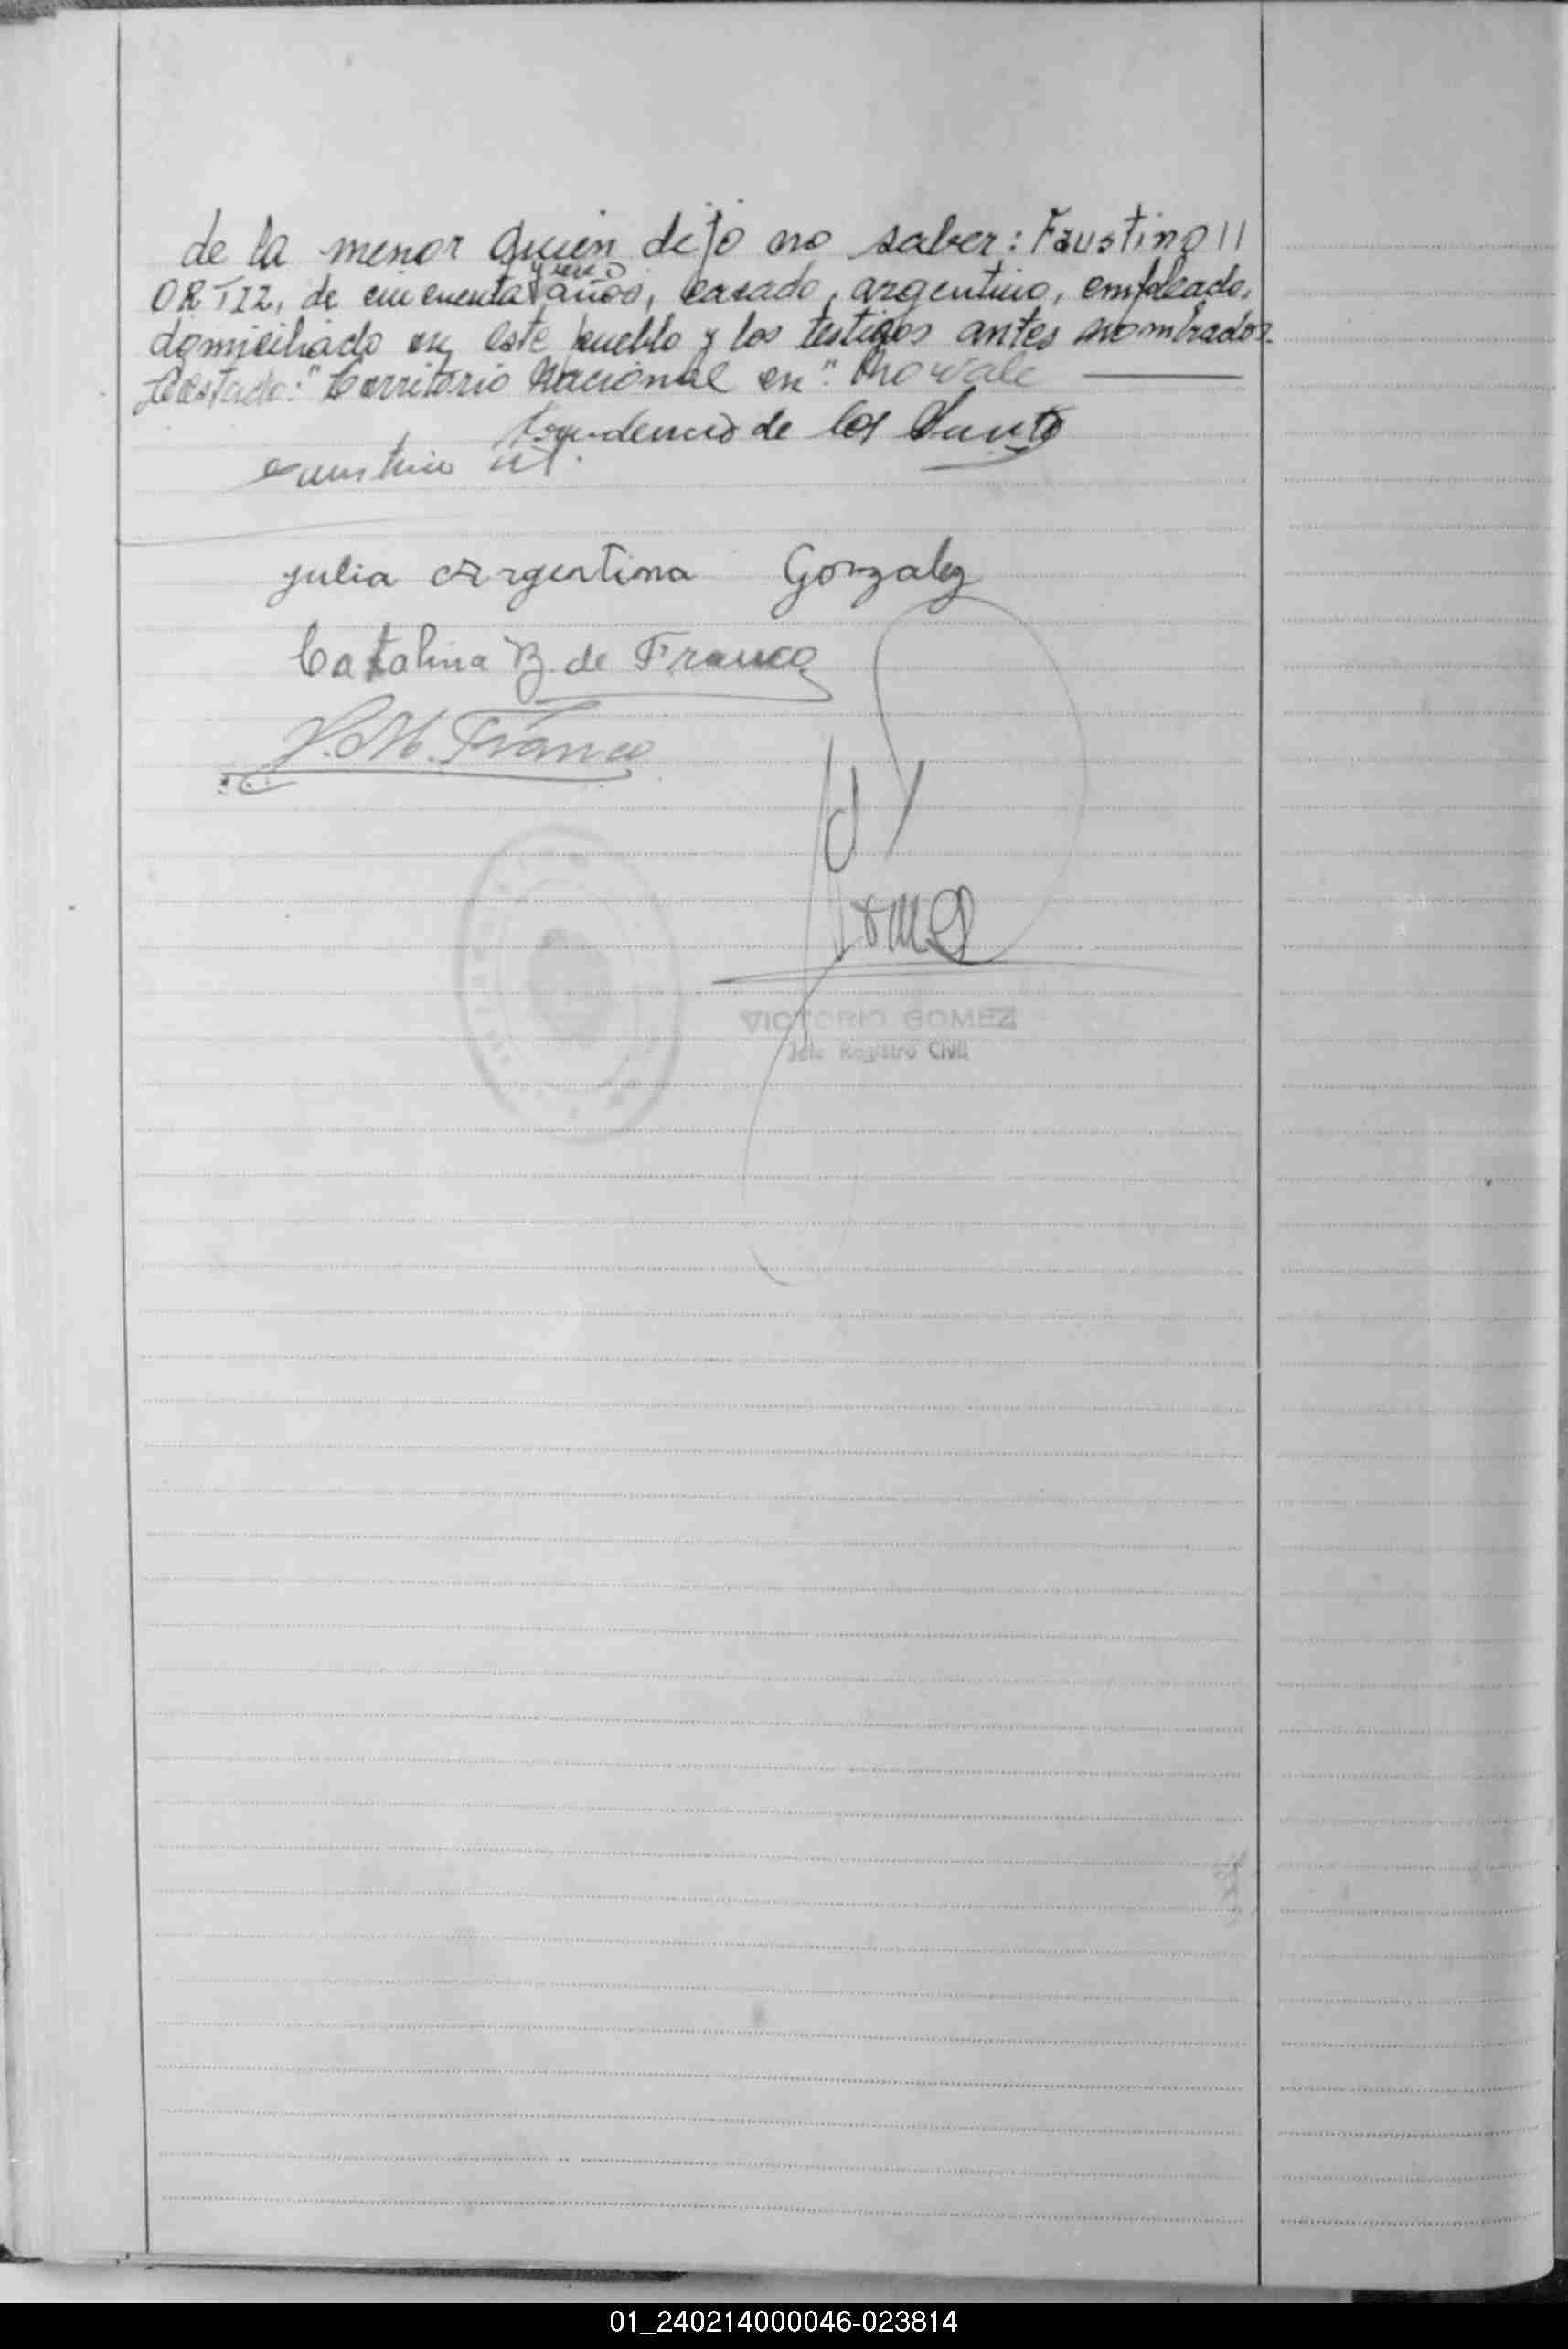 de la menor quien dijo no saber: Faustino //
ORTIZ, de cincuenta y uno años, casado, argentino, empleado,
domiciliado en este pueblo y los testigos antes nombrados.
Testado: "Territorio Nacional en": No vale
de los Santos
Julia Argentina Gonzalez
Catalina B. de Franco
Franco
VICTORIO GOMEZ
Jefe Registro Civil
01_240214000046-023814